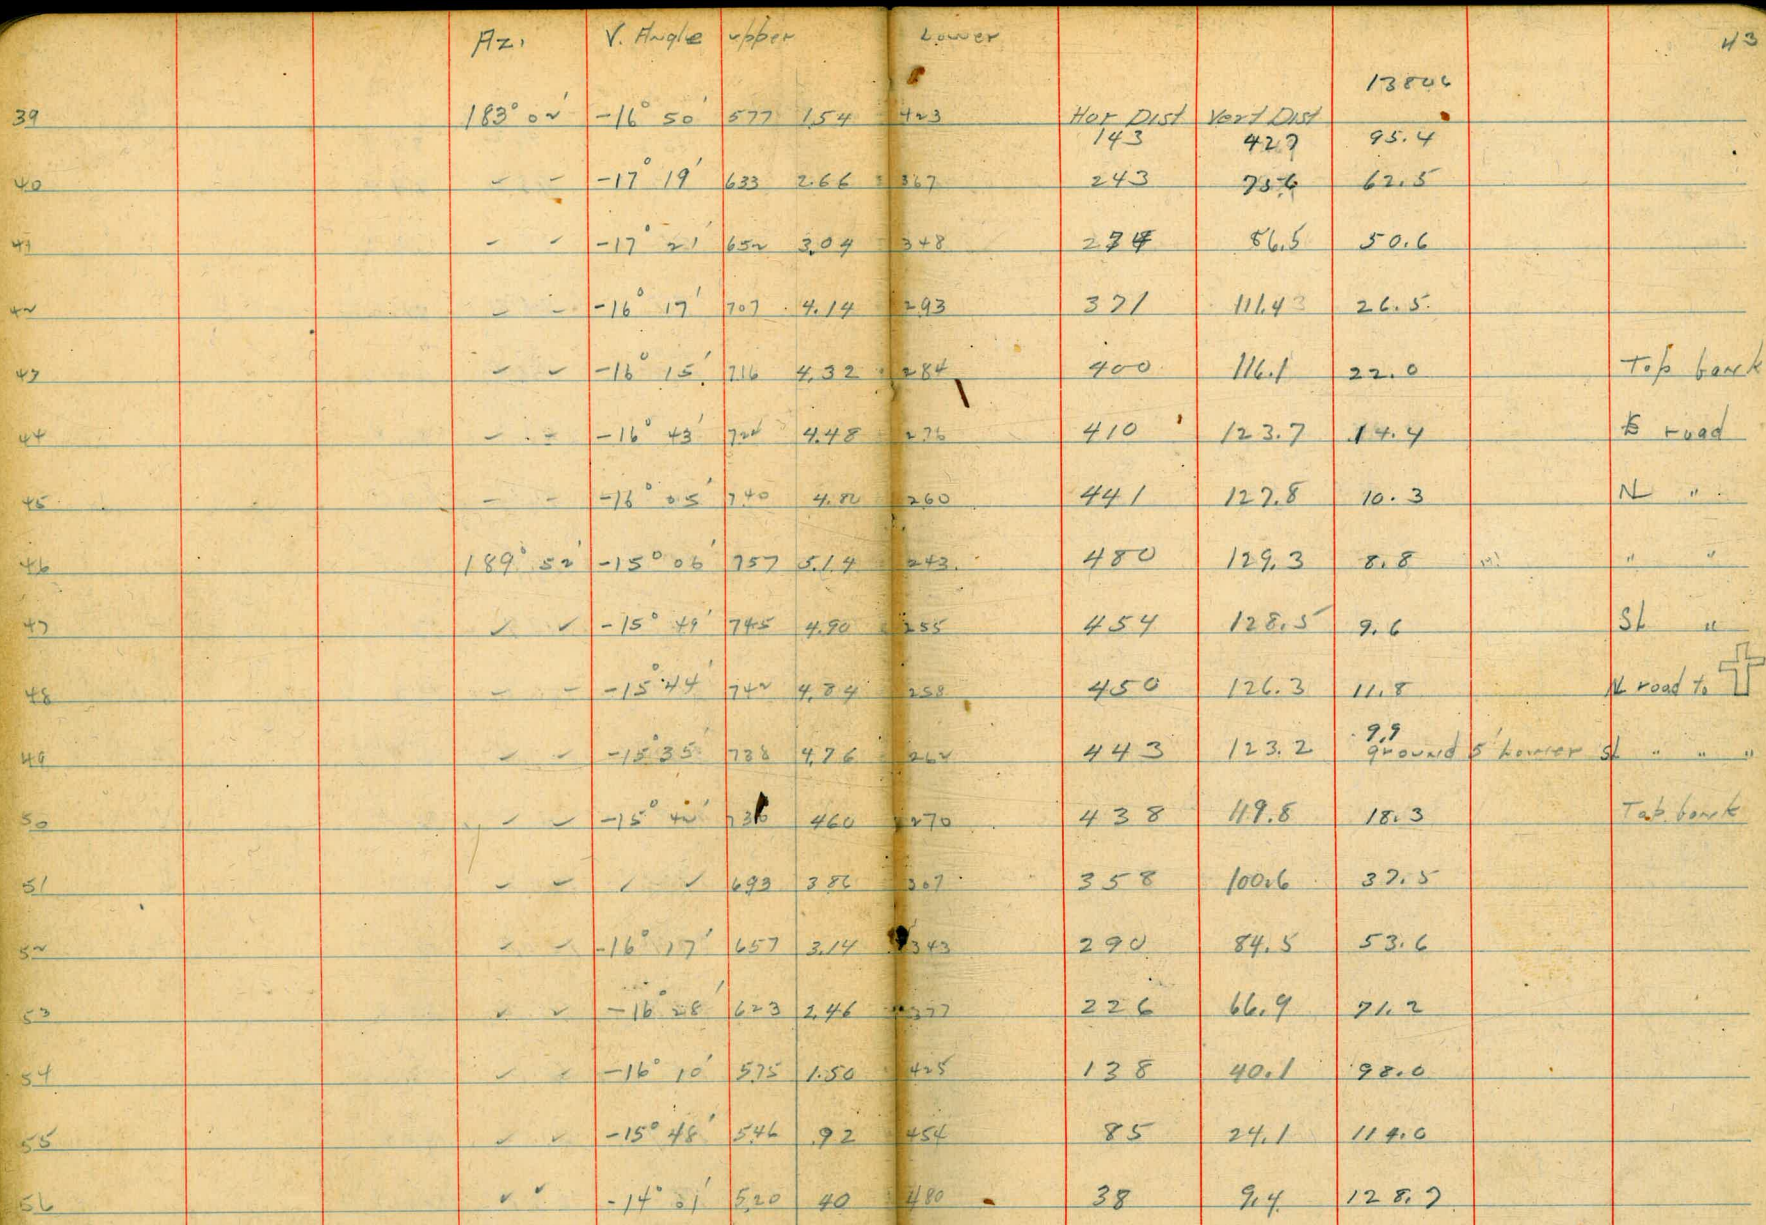 Az. V. Angle upper Lower 43
13806
39 183° 02' -16° 50' 577 1.54 423 Hor Dist Vert Dist
143 427 95.4
40 ✓ - -17° 19' 633 2.66 367 243 75.6 62.5
41 - ✓ -17° 21' 652 3.04 348 274 86.5 50.6
42 ✓ - -16° 17' 707 4.14 293 371 111.43 26.5
43 ✓ ✓ -16° 15' 716 4.32 284 400 116.1 22.0 Top bank
44 - - -16° 43' 724 4.48 276 410 123.7 14.4 road
45 - - -16° 05' 740 4.80 260 441 127.8 10.3 NL "
46 189° 52' -15° 06' 757 5.14 243 480 129.3 8.8 " "
47 ✓ ✓ -15° 49' 745 4.90 255 454 128.5 9.6 SL "
48 - - -15° 44' 742 4.84 258 450 126.3 11.8 NL road to
9.9
49 ✓ ✓ -15° 35' 738 4.76 262 443 123.2 ground 5' Lower SL " " "
50 ✓ ✓ -15° 42' 730 460 270 438 119.8 18.3 Top bank
51 ✓ - ✓ ✓ 693 3.86 307 358 100.6 37.5
52 ✓ - -16° 17' 657 3.14 343 290 84.5 53.6
53 ✓ ✓ -16° 28' 623 2.46 377 226 66.9 71.2
54 ✓ ✓ -16° 10' 575 1.50 425 138 40.1 98.0
55 ✓ ✓ -15° 48' 546 .92 454 85 24.1 114.0
56 ✓ ✓ -14° 01' 520 40 480 38 9.4 128.7